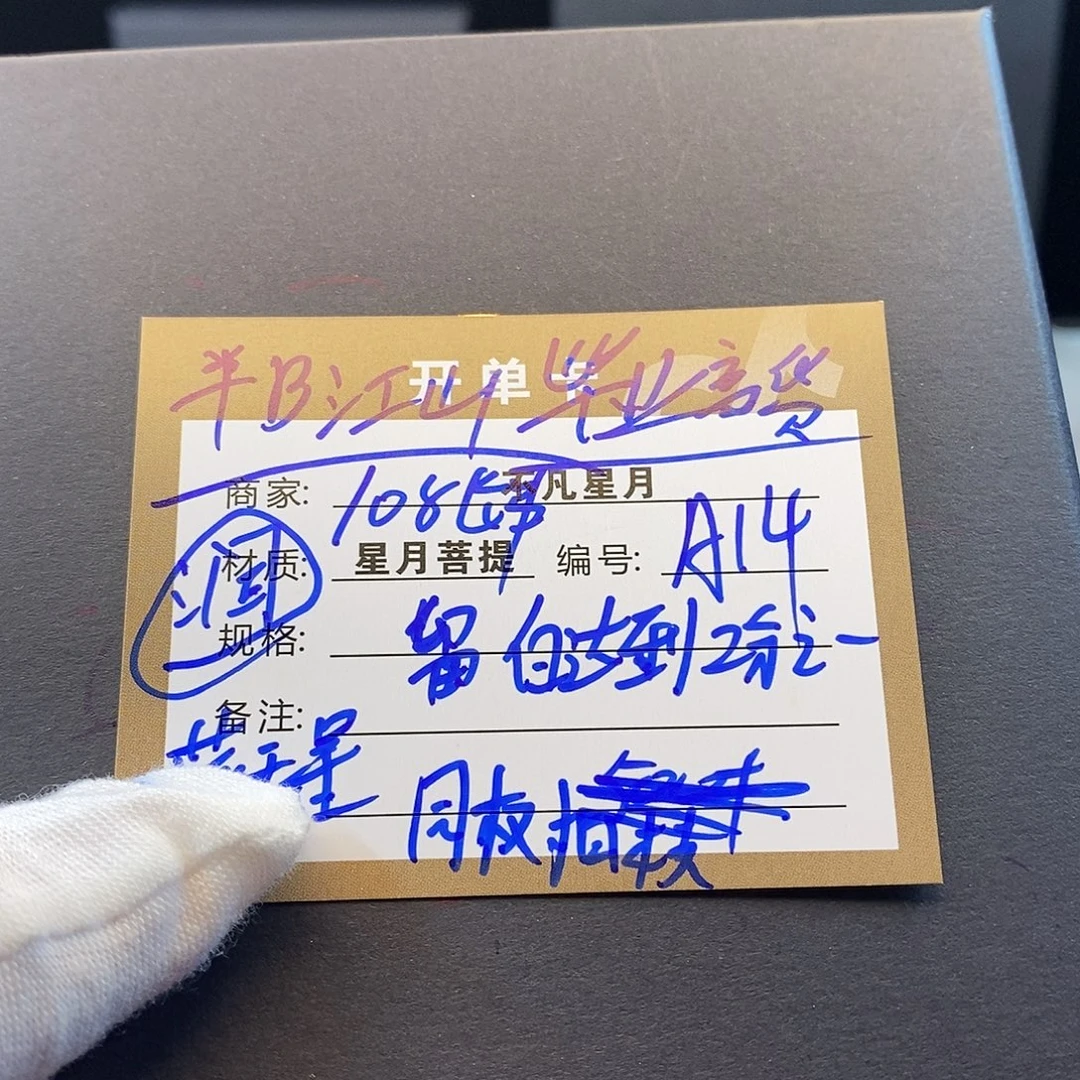 开单卡
半B江山毕业高货
商家: 不凡星月
108长串
材质: 星月菩提 编号: A14
润
规格: 留白达到2分之一
备注:
同板拍